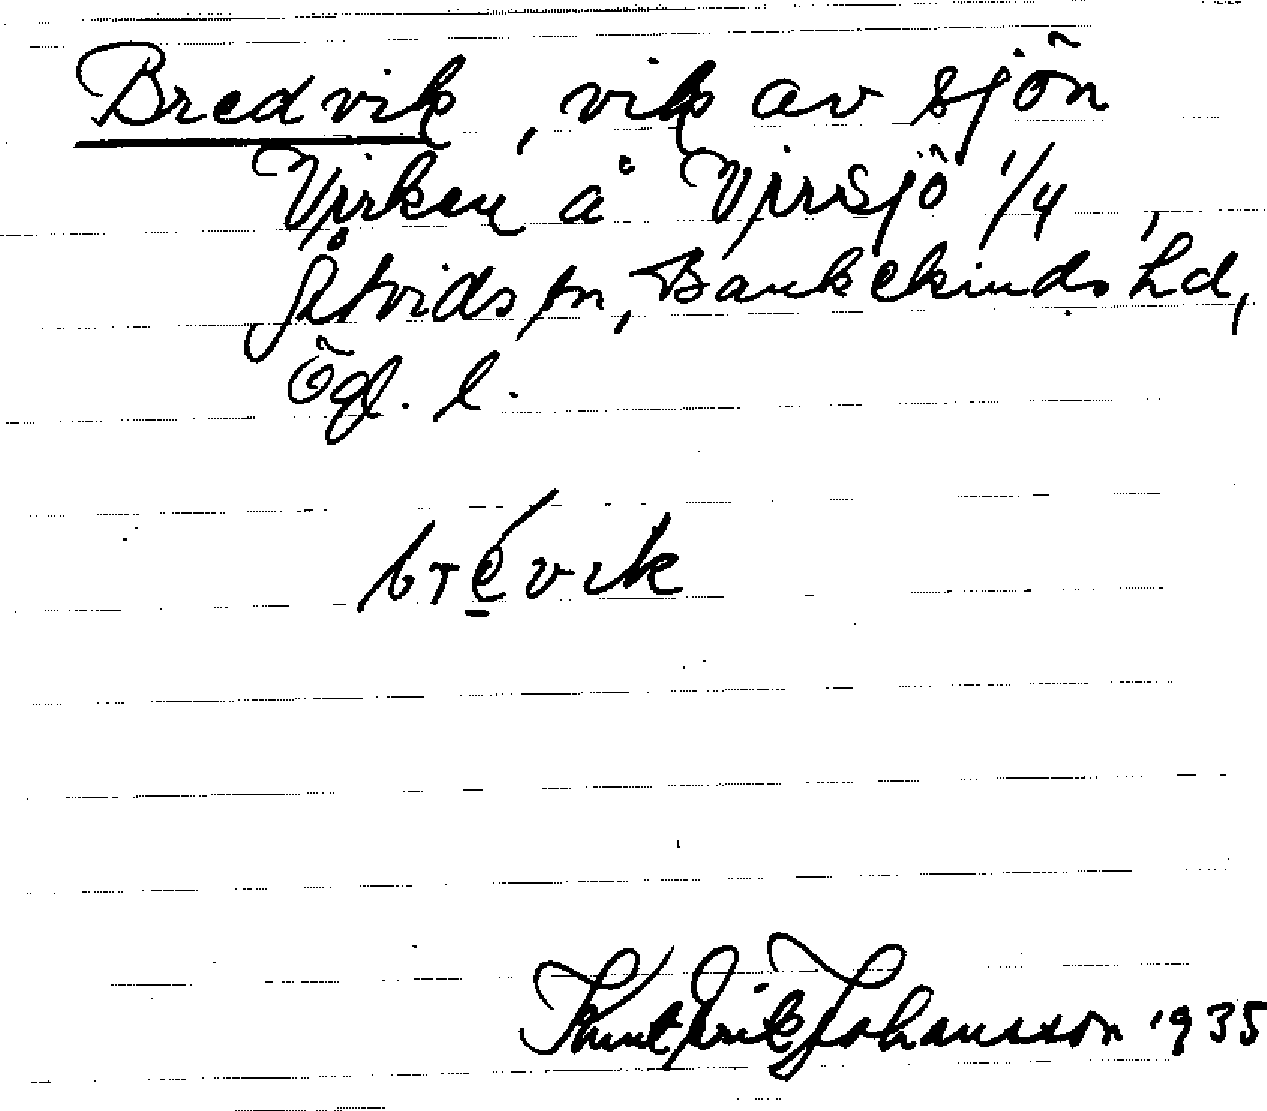 Bredvik, vik av sjön
Virken å Virsjö 1/4,
Åtvids sn, Bankekinds hd,
Ögl. l.
brévik
Knut Erik Johansson 1935